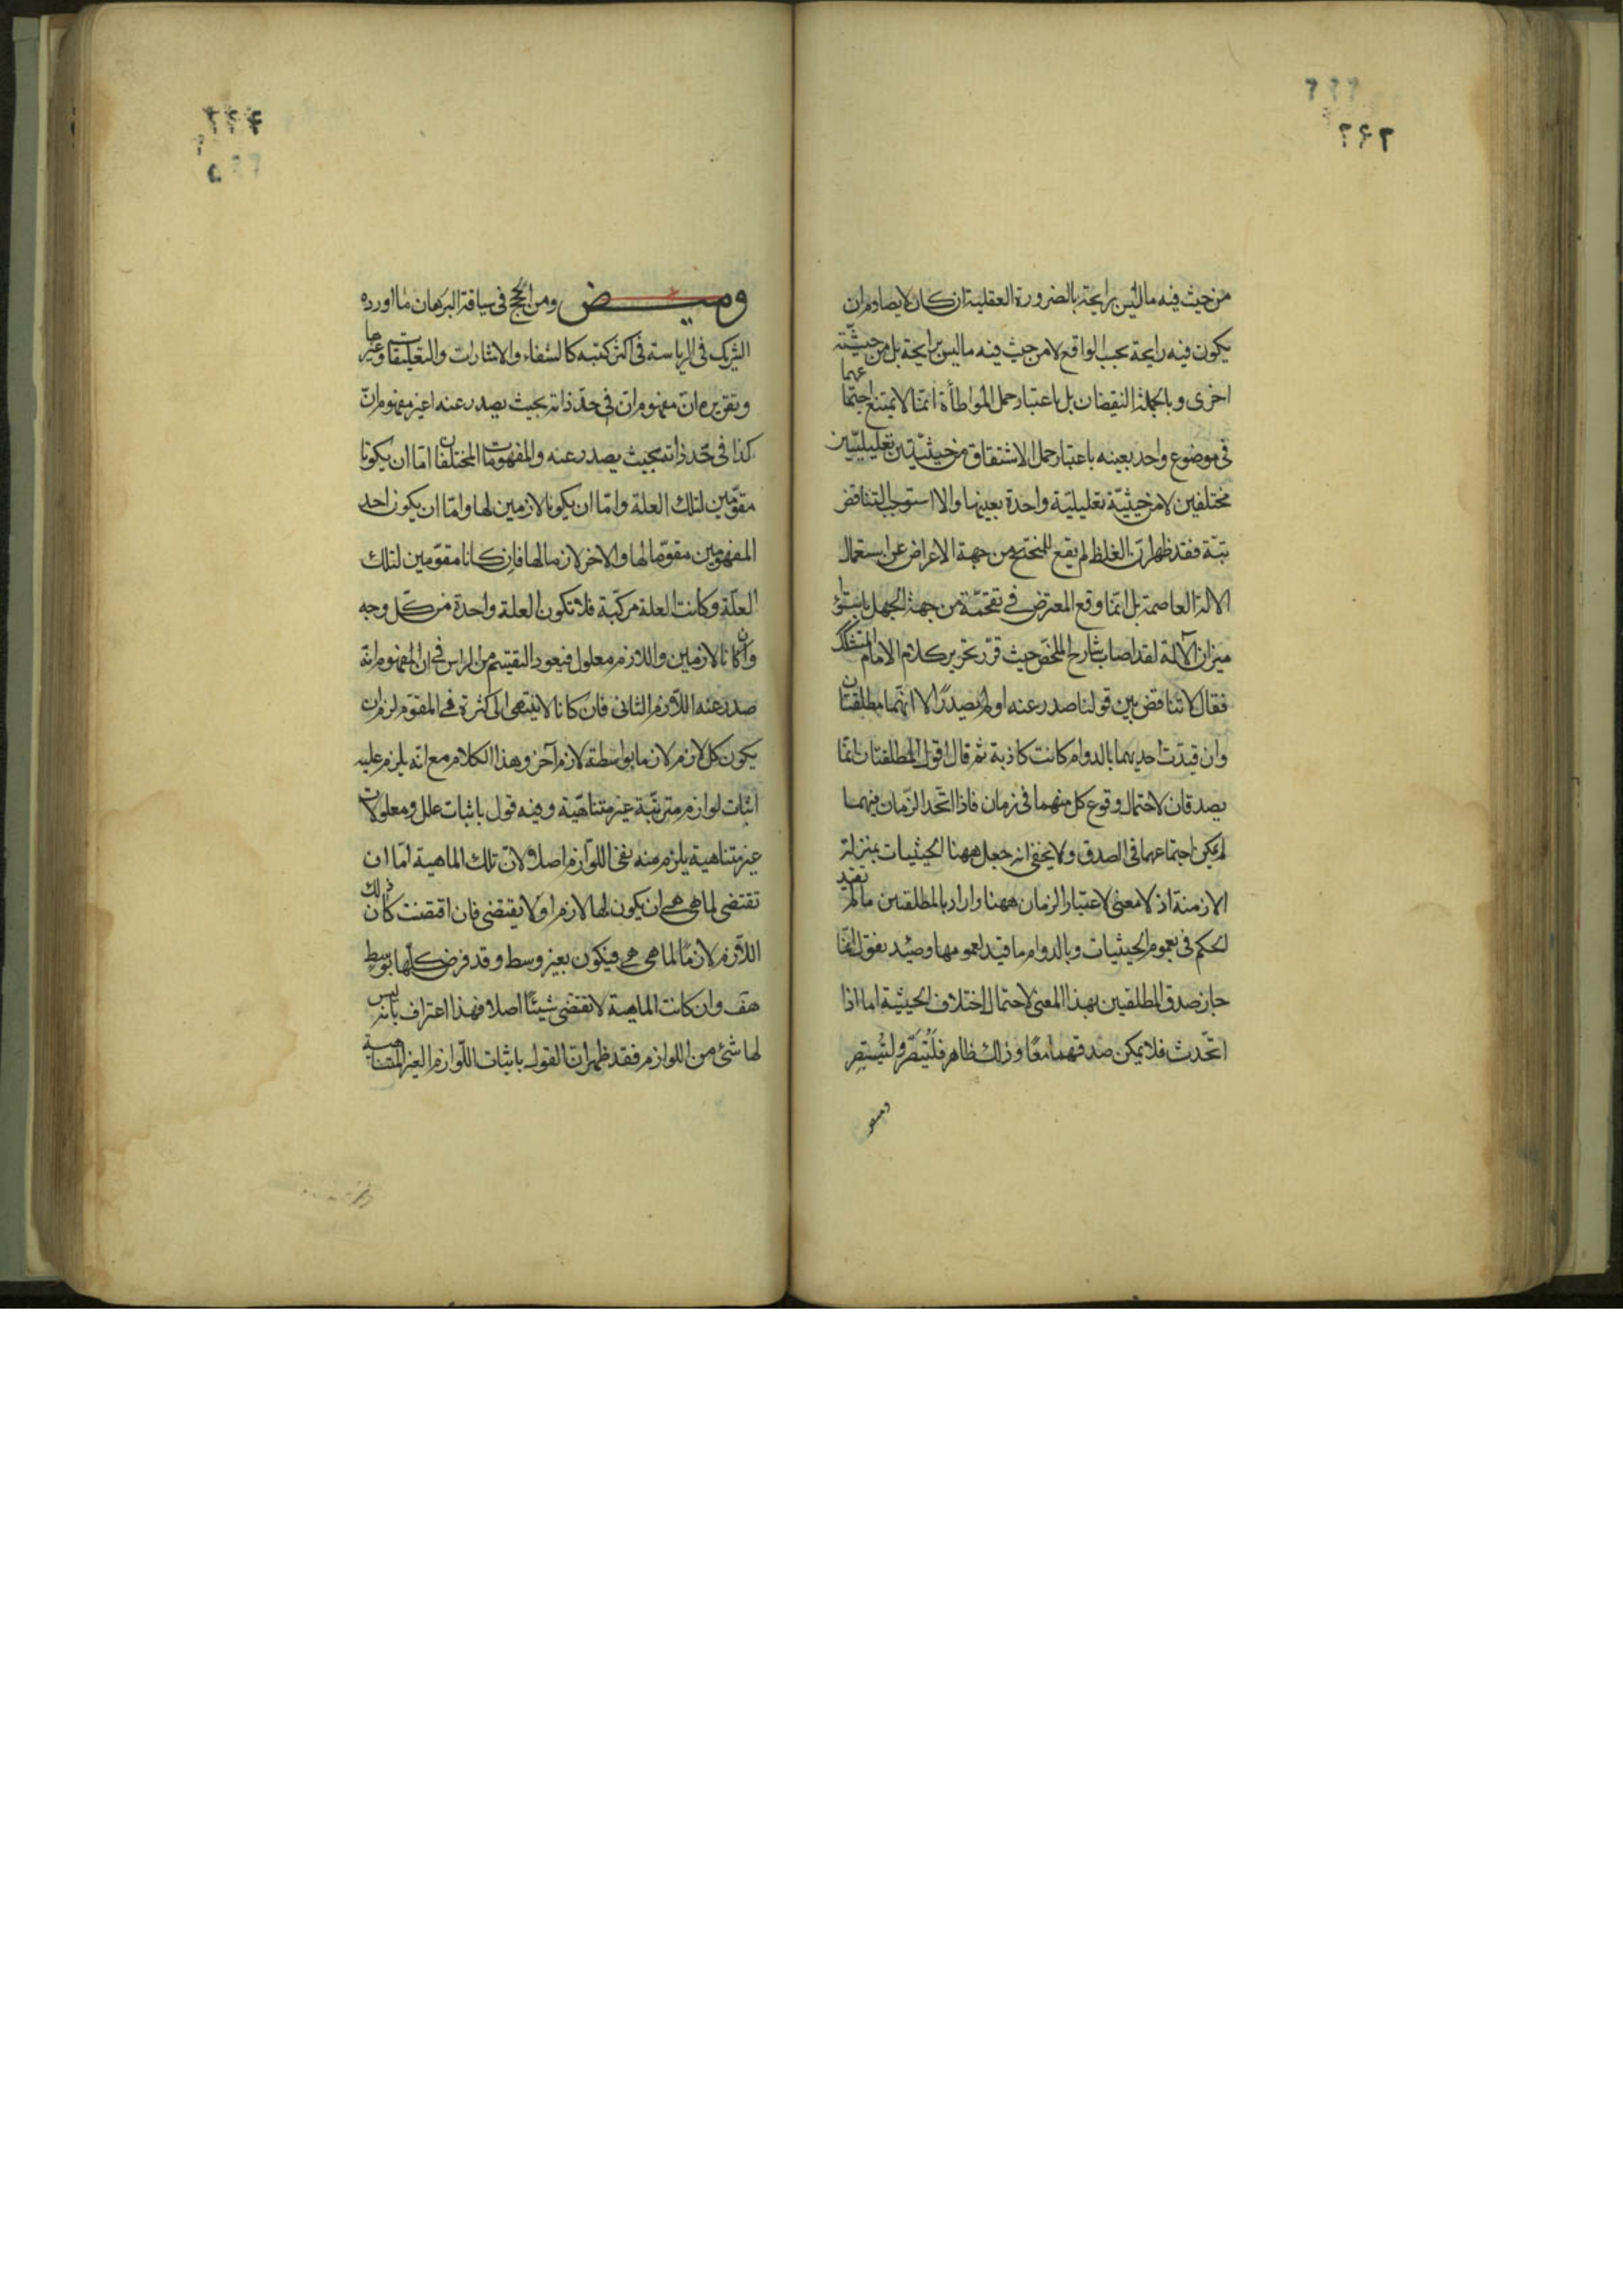 من حيث فيه ما ليس برايحة بالضرورة العقلية ان كان لا يصادم ان
يكون فيه رايحة بحسب الواقع لا من حيث فيه ما ليس برايحة بل من حيثيّته
اخرى و بالجملة النقيضان بل باعتبار حمل المواطأة انّما لا يمتنع اجتماعهما
فى موضوع واحد بعينه باعتبار حمل الاشتقاق من حيثيّتين تعليليّتين
مختلفين لا من حيثيّة تعليليّة واحدة بعينها والا استوجب التناقض
بتّة فقد ظهر انّ الغلط لم يقع للمحتج من جهة الاعراض عن استعمال
الالة العاصمة بل انّما وقع المعترض فى تقحّمه من جهة الجهل باستواء
ميزان الآلة لقد اصاب شارح الملخّص حيث قرّر تحرير كلام الامام المتشكك
فقال لا تناقض بين قولنا صدر عنه او لم يصدر الا انهما مطلقتان
وان قيّدت احديهما بالدوام كانت كاذبة ثم قال اقول المطلقتان انّما
يصدقان لاحتمال وقوع كل منهما فى زمان فاذا اتّحد الزمان فيهما
لم يكن اجتماعهما فى الصدق ولا يخفى انه جعل ههنا الحيثيات بمنزلة
الازمنة اذ لا معنى لاعتبار الزمان ههنا واراد بالمطلقتين ما لم تقيد
الحكم فى بعموم الحيثيات وبالدوام ما قيد لعمومها وحينئذ يقول انّما
جاز صدق المطلقين بهذا المعنى لاحتمال اختلاف الحيثية اما اذا
اتّحدت فلا يمكن صدقهما معًا وذلك ظاهر فليُتبصّر وليُستبصر
وميض
وميض ومن الحجج فى سياقة البرهان ما اورده
الشريك فى الرياسة فى اكثر كتبه كالشفاء والاشارات والتعليقات وغيرها
وتقريره انّ مفهوم انّ فى حدّ ذاته بحيث يصدر عنه ا غير مفهوم انّ
كذا فى حدّ ذاته بحيث يصدر عنه والمفهومات المختلفان امّا ان يكونا
مقوّمين لتلك العلة وامّا ان يكونا لازمين لها وامّا ان يكون احد
المفهومين مقوّما لها والاخر لازما لها فان كانا مقوّمين لتلك
العلّة وكانت العلة مركّبة فلا تكون العلة واحدة من كلّ وجه
وان كانا لازمين واللازم معلول فيعود التقسيم من الراس فى ان المفهوم انّه
صدر عنه اللازم الثانى فان كانا لا ينتهى الى كثرة فى المقوّم لزم ان
يكون كل لازم لازما بواسطة لازم آخر وهذا الكلام مع انّه يلزم عليه
اثبات لوازم مترتّبة غير متناهيّة وفيه قول باثبات علل ومعلولات
غير متناهية يلزم منه نفى اللوازم اصلا ولانّ تلك الماهية امّا ان
تقتضى لما هى هى ان يكون لها لازم او لا يقتضى فان اقتضت كان ذلك
اللازم لازمًا لما هى هى فيكون بغير وسط وقد فرض كلّها بوسط
هف وان كانت الماهية لا تقتضى شيئًا اصلا فهذا اعتراف بانّه ليس
لها شئ من اللوازم فقد ظهر انّ القول باثبات اللّوازم الغير المتناهية